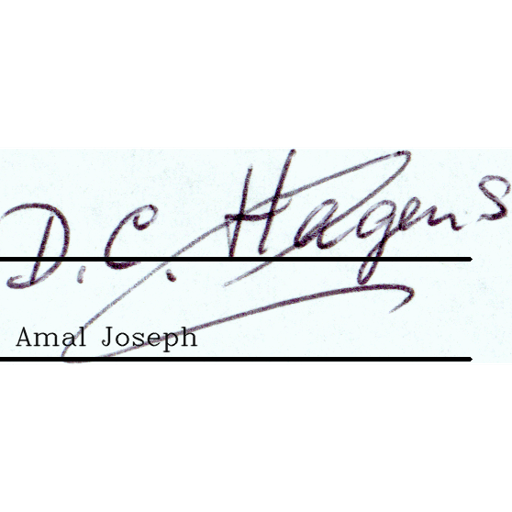 D. C. Hagens
Amal Joseph